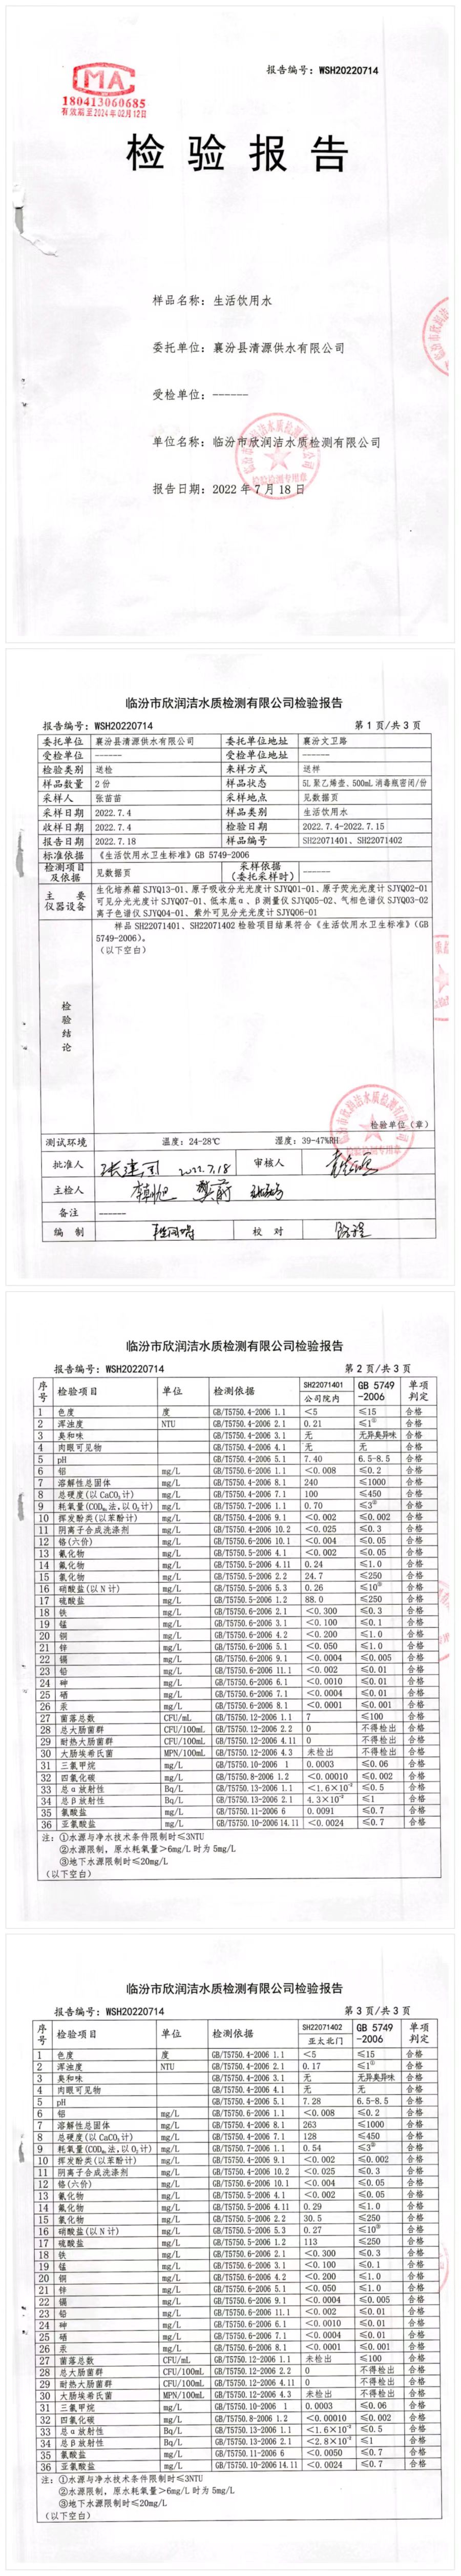 报告编号：WSH20220714
CMA
180413060685
有效期至2024年02月12日
检验报告
样品名称：生活饮用水
委托单位：襄汾县清源供水有限公司
受检单位：------
单位名称：临汾市欣润洁水质检测有限公司
报告日期：2022年7月18日
检验检测专用章
临汾市欣润洁水质检测有限公司检验报告
报告编号：WSH20220714 第1页/共3页
委托单位 襄汾县清源供水有限公司 委托单位地址 襄汾文卫路
受检单位 ------ 受检单位地址 ------
检验类别 送检 来样方式 送样
样品数量 2份 样品状态 5L聚乙烯壶、500mL消毒瓶密闭/份
采样人 张苗苗 采样地点 见数据页
采样日期 2022.7.4 样品类别 生活饮用水
收样日期 2022.7.4 检验日期 2022.7.4-2022.7.15
报告日期 2022.7.18 样品编号 SH22071401、SH22071402
标准依据 《生活饮用水卫生标准》GB 5749-2006
检测项目及依据 见数据页 采样依据（委托采样时） ------
主要仪器设备 生化培养箱SJYQ13-01、原子吸收分光光度计SJYQ01-01、原子荧光光度计SJYQ02-01
可见分光光度计SJYQ07-01、低本底α、β测量仪SJYQ05-02、气相色谱仪SJYQ03-02
离子色谱仪SJYQ04-01、紫外可见分光光度计SJYQ06-01
检验结论
样品SH22071401、SH22071402检验项目结果符合《生活饮用水卫生标准》（GB
5749-2006）。
（以下空白）
检验单位（章）
测试环境 温度：24-28℃ 湿度：39-47%RH
批准人 2022.7.18 审核人
主检人
备注 ------
编制 校对
临汾市欣润洁水质检测有限公司检验报告
报告编号：WSH20220714 第2页/共3页
序号 检验项目 单位 检测依据 SH22071401 公司院内 GB 5749-2006 单项判定
1 色度 度 GB/T5750.4-2006 1.1 <5 ≤15 合格
2 浑浊度 NTU GB/T5750.4-2006 2.1 0.21 ≤1① 合格
3 臭和味 GB/T5750.4-2006 3.1 无 无异臭异味 合格
4 肉眼可见物 GB/T5750.4-2006 4.1 无 无 合格
5 pH GB/T5750.4-2006 5.1 7.40 6.5-8.5 合格
6 铝 mg/L GB/T5750.6-2006 1.1 <0.008 ≤0.2 合格
7 溶解性总固体 mg/L GB/T5750.4-2006 8.1 240 ≤1000 合格
8 总硬度(以CaCO₃计) mg/L GB/T5750.4-2006 7.1 100 ≤450 合格
9 耗氧量(CODMn法,以O₂计) mg/L GB/T5750.7-2006 1.1 0.70 ≤3② 合格
10 挥发酚类(以苯酚计) mg/L GB/T5750.4-2006 9.1 <0.002 ≤0.002 合格
11 阴离子合成洗涤剂 mg/L GB/T5750.4-2006 10.2 <0.025 ≤0.3 合格
12 铬(六价) mg/L GB/T5750.6-2006 10.1 <0.004 ≤0.05 合格
13 氰化物 mg/L GB/T5750.5-2006 4.1 <0.002 ≤0.05 合格
14 氟化物 mg/L GB/T5750.5-2006 4.11 0.24 ≤1.0 合格
15 氯化物 mg/L GB/T5750.5-2006 2.2 24.7 ≤250 合格
16 硝酸盐(以N计) mg/L GB/T5750.5-2006 5.3 0.26 ≤10③ 合格
17 硫酸盐 mg/L GB/T5750.5-2006 1.2 88.0 ≤250 合格
18 铁 mg/L GB/T5750.6-2006 2.1 <0.300 ≤0.3 合格
19 锰 mg/L GB/T5750.6-2006 3.1 <0.100 ≤0.1 合格
20 铜 mg/L GB/T5750.6-2006 4.2 <0.200 ≤1.0 合格
21 锌 mg/L GB/T5750.6-2006 5.1 <0.050 ≤1.0 合格
22 镉 mg/L GB/T5750.6-2006 9.1 <0.0004 ≤0.005 合格
23 铅 mg/L GB/T5750.6-2006 11.1 <0.002 ≤0.01 合格
24 砷 mg/L GB/T5750.6-2006 6.1 <0.0010 ≤0.01 合格
25 硒 mg/L GB/T5750.6-2006 7.1 <0.0004 ≤0.01 合格
26 汞 mg/L GB/T5750.6-2006 8.1 <0.0001 ≤0.001 合格
27 菌落总数 CFU/mL GB/T5750.12-2006 1.1 7 ≤100 合格
28 总大肠菌群 CFU/100mL GB/T5750.12-2006 2.2 0 不得检出 合格
29 耐热大肠菌群 CFU/100mL GB/T5750.12-2006 4.11 0 不得检出 合格
30 大肠埃希氏菌 MPN/100mL GB/T5750.12-2006 4.3 未检出 不得检出 合格
31 三氯甲烷 mg/L GB/T5750.10-2006 1 0.0003 ≤0.06 合格
32 四氯化碳 mg/L GB/T5750.8-2006 1.2 <0.00010 ≤0.002 合格
33 总α放射性 Bq/L GB/T5750.13-2006 1.1 <1.6×10⁻² ≤0.5 合格
34 总β放射性 Bq/L GB/T5750.13-2006 2.1 4.3×10⁻² ≤1 合格
35 氯酸盐 mg/L GB/T5750.11-2006 6 0.0091 ≤0.7 合格
36 亚氯酸盐 mg/L GB/T5750.10-2006 14.11 <0.0024 ≤0.7 合格
注：①水源与净水技术条件限制时≤3NTU
②水源限制，原水耗氧量>6mg/L时为5mg/L
③地下水源限制时≤20mg/L
（以下空白）
临汾市欣润洁水质检测有限公司检验报告
报告编号：WSH20220714 第3页/共3页
序号 检验项目 单位 检测依据 SH22071402 亚太北门 GB 5749-2006 单项判定
1 色度 度 GB/T5750.4-2006 1.1 <5 ≤15 合格
2 浑浊度 NTU GB/T5750.4-2006 2.1 0.17 ≤1① 合格
3 臭和味 GB/T5750.4-2006 3.1 无 无异臭异味 合格
4 肉眼可见物 GB/T5750.4-2006 4.1 无 无 合格
5 pH GB/T5750.4-2006 5.1 7.28 6.5-8.5 合格
6 铝 mg/L GB/T5750.6-2006 1.1 <0.008 ≤0.2 合格
7 溶解性总固体 mg/L GB/T5750.4-2006 8.1 263 ≤1000 合格
8 总硬度(以CaCO₃计) mg/L GB/T5750.4-2006 7.1 128 ≤450 合格
9 耗氧量(CODMn法,以O₂计) mg/L GB/T5750.7-2006 1.1 0.54 ≤3② 合格
10 挥发酚类(以苯酚计) mg/L GB/T5750.4-2006 9.1 <0.002 ≤0.002 合格
11 阴离子合成洗涤剂 mg/L GB/T5750.4-2006 10.2 <0.025 ≤0.3 合格
12 铬(六价) mg/L GB/T5750.6-2006 10.1 <0.004 ≤0.05 合格
13 氰化物 mg/L GB/T5750.5-2006 4.1 <0.002 ≤0.05 合格
14 氟化物 mg/L GB/T5750.5-2006 4.11 0.29 ≤1.0 合格
15 氯化物 mg/L GB/T5750.5-2006 2.2 30.5 ≤250 合格
16 硝酸盐(以N计) mg/L GB/T5750.5-2006 5.3 0.27 ≤10③ 合格
17 硫酸盐 mg/L GB/T5750.5-2006 1.2 113 ≤250 合格
18 铁 mg/L GB/T5750.6-2006 2.1 <0.300 ≤0.3 合格
19 锰 mg/L GB/T5750.6-2006 3.1 <0.100 ≤0.1 合格
20 铜 mg/L GB/T5750.6-2006 4.2 <0.200 ≤1.0 合格
21 锌 mg/L GB/T5750.6-2006 5.1 <0.050 ≤1.0 合格
22 镉 mg/L GB/T5750.6-2006 9.1 <0.0004 ≤0.005 合格
23 铅 mg/L GB/T5750.6-2006 11.1 <0.002 ≤0.01 合格
24 砷 mg/L GB/T5750.6-2006 6.1 <0.0010 ≤0.01 合格
25 硒 mg/L GB/T5750.6-2006 7.1 <0.0004 ≤0.01 合格
26 汞 mg/L GB/T5750.6-2006 8.1 <0.0001 ≤0.001 合格
27 菌落总数 CFU/mL GB/T5750.12-2006 1.1 未检出 ≤100 合格
28 总大肠菌群 CFU/100mL GB/T5750.12-2006 2.2 0 不得检出 合格
29 耐热大肠菌群 CFU/100mL GB/T5750.12-2006 4.11 0 不得检出 合格
30 大肠埃希氏菌 MPN/100mL GB/T5750.12-2006 4.3 未检出 不得检出 合格
31 三氯甲烷 mg/L GB/T5750.10-2006 1 0.0003 ≤0.06 合格
32 四氯化碳 mg/L GB/T5750.8-2006 1.2 <0.00010 ≤0.002 合格
33 总α放射性 Bq/L GB/T5750.13-2006 1.1 <1.6×10⁻² ≤0.5 合格
34 总β放射性 Bq/L GB/T5750.13-2006 2.1 <2.8×10⁻² ≤1 合格
35 氯酸盐 mg/L GB/T5750.11-2006 6 <0.0050 ≤0.7 合格
36 亚氯酸盐 mg/L GB/T5750.10-2006 14.11 <0.0024 ≤0.7 合格
注：①水源与净水技术条件限制时≤3NTU
②水源限制，原水耗氧量>6mg/L时为5mg/L
③地下水源限制时≤20mg/L
（以下空白）